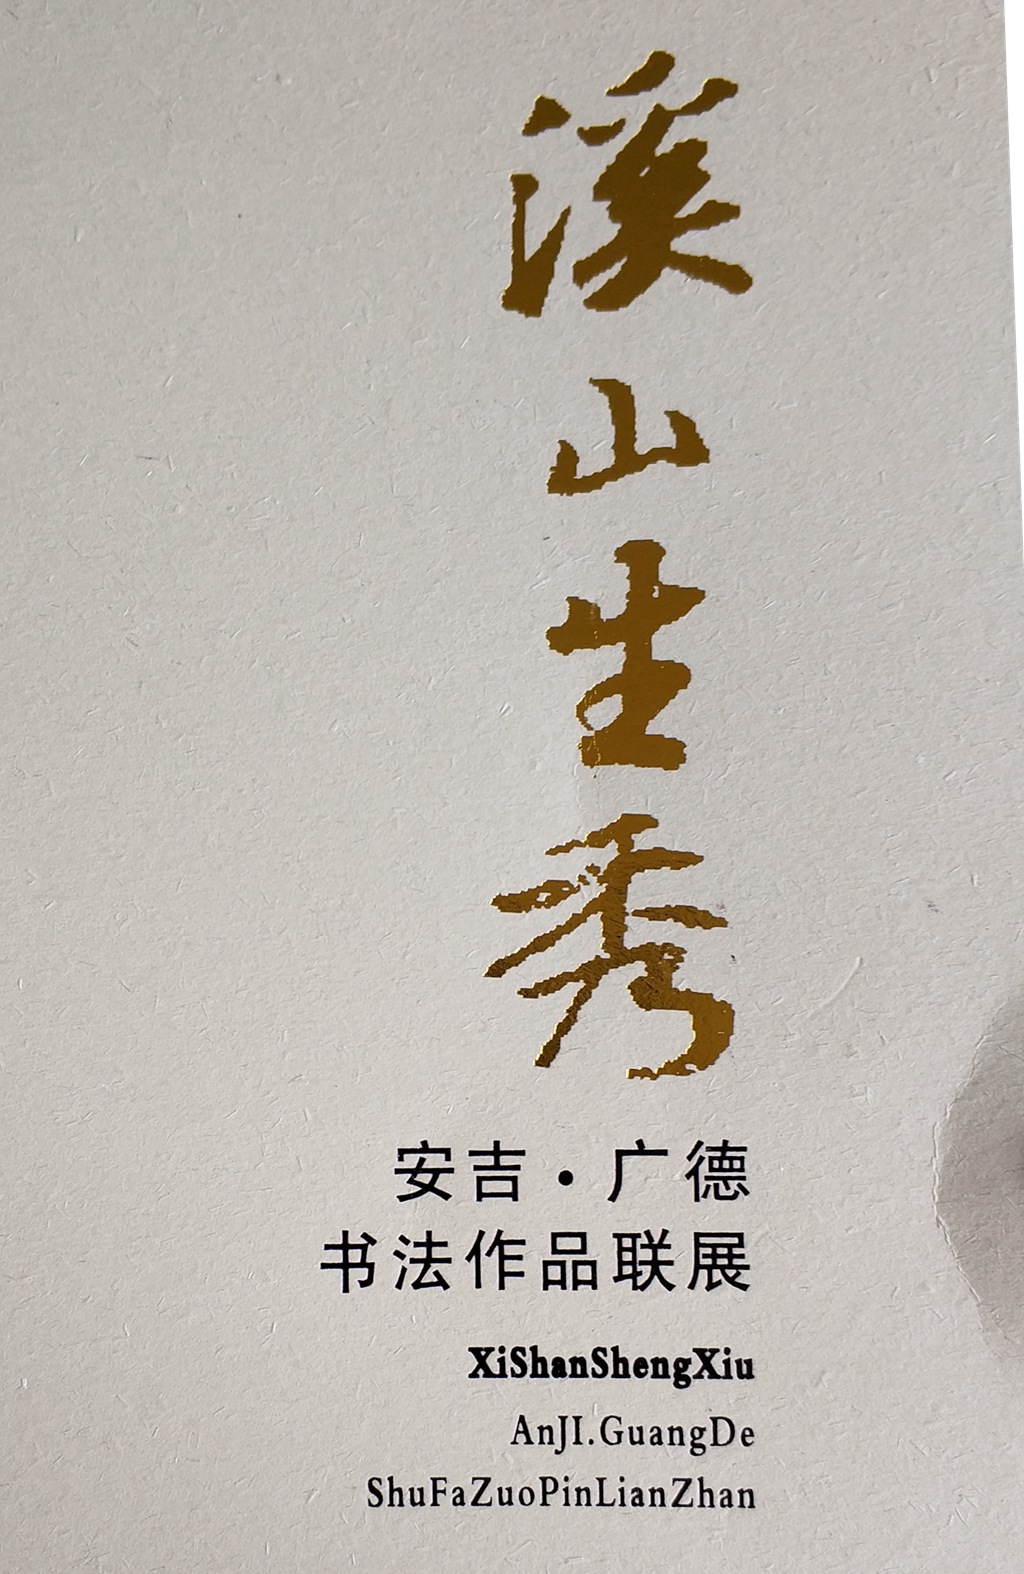 溪山生秀
安吉·广德
书法作品联展
XiShanShengXiu
AnJI.GuangDe
ShuFaZuoPinLianZhan